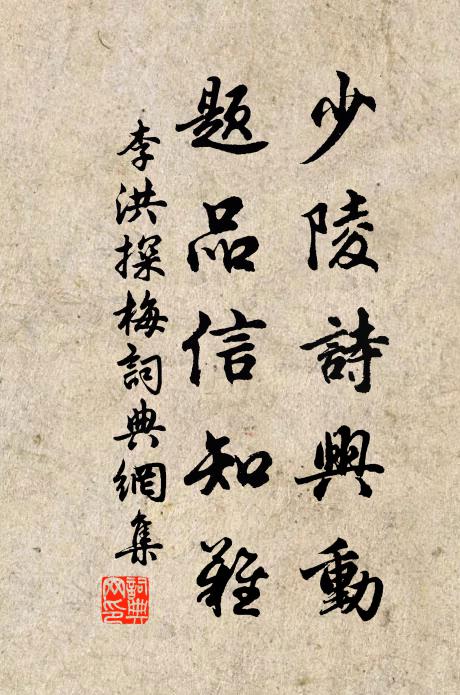 少陵詩興動
題品信知難
李洪探梅詞典網集
詞典网印